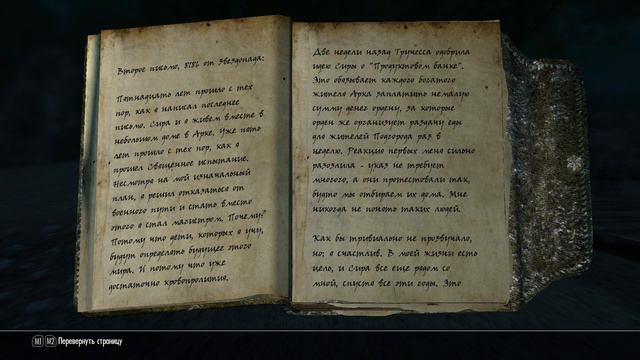 Второе письмо, 8782 от Звездопада:
Пятнадцать лет прошло с тех
пор, как я написал последнее
письмо. Сира и я живем вместе в
небольшом доме в Арке. Уже пять
лет прошло с тех пор, как я
прошел Священное испытание.
Несмотря на мой изначальный
план, я решил отказаться от
военного пути и стать вместо
этого я стал магистром. Почему?
Потому что дети, которых я учу,
будут определять будущее этого
мира. И потому что уже
достаточно кровопролития.
Две недели назад Тручесса одобрила
идею Сиры о "Продуктовом банке".
Это обязывает каждого богатого
жителя Арка заплатить немалую
сумму денег ордену, за которые
орден же организует раздачу еды
для жителей Подгорода раз в
неделю. Реакция первых меня сильно
разозлила - указ не требует
многого, а они протестовали так,
будто мы отбираем их дома. Мне
никогда не понять таких людей.
Как бы тривиально не прозвучало,
но: я счастлив. В моей жизни есть
цель, и Сира все еще рядом со
мной, спустя все эти годы. Это
M1 M2 Перевернуть страницу